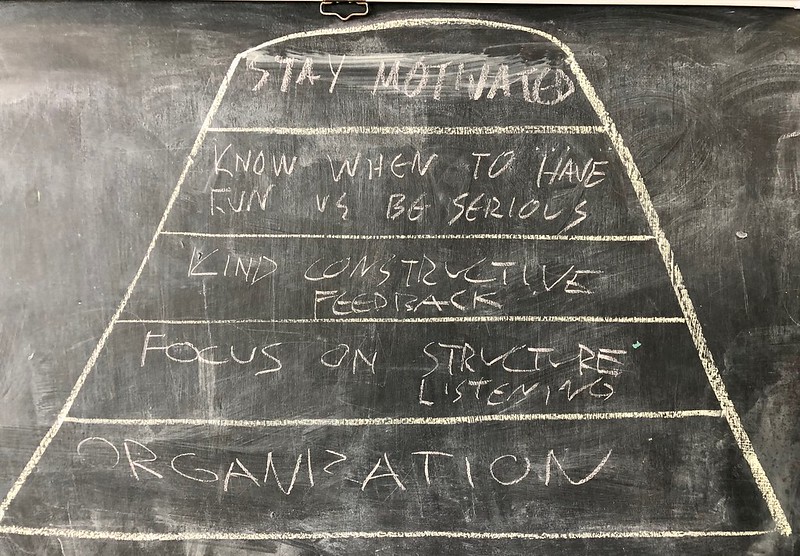 STAY MOTIVATED
KNOW WHEN TO HAVE
FUN VS BE SERIOUS
KIND CONSTRUCTIVE
FEEDBACK
FOCUS ON STRUCTURE
LISTENING
ORGANIZATION